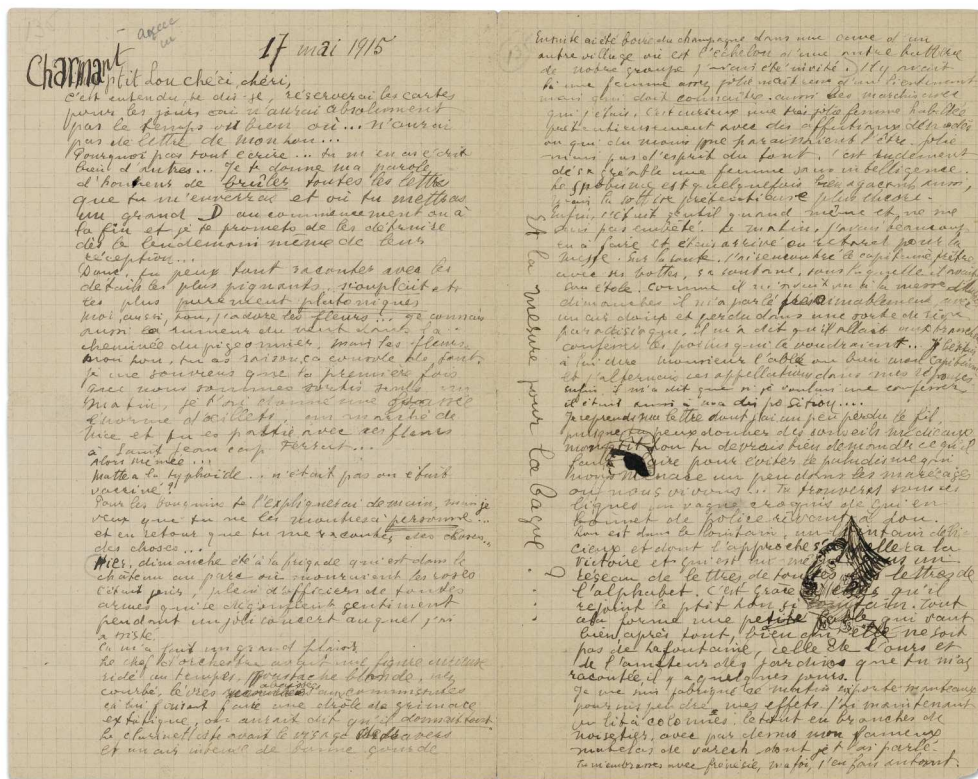 17 mai 1915
Charmant ptit Lou chéri, chéri,
c'est entendu, te dis-je, réserverai les cartes
pour les jours où n'aurai absolument
pas le temps ou bien où... n'aurai
pas de lettre de mon Lou...
Pourquoi pas tout écrire... tu m'en as écrit
bien d'autres... Je te donne ma parole
d'honneur de brûler toutes les lettres
que tu m'enverras et où tu mettras
un grand D au commencement ou à
la fin et je te promets de les détruire
dès le lendemain même de leur
réception...
Donc, tu peux tout raconter avec les
détails les plus piquants, s'ouplait et
les plus purement platoniques
moi, aussi, Lou, j'adore les fleurs... je connais
aussi la rumeur du vent dans la
cheminée du pigeonnier, mais les fleurs
mon Lou, tu as raison, ça console de tout
je me souviens que la première fois
que nous sommes sortis un
matin, je t'ai donné une brassée
énorme d'œillets, au marché de
Nice et tu es partie avec ces fleurs
à Saint Jean Cap Ferrat...
Alors Mémée...
Matte a la typhoïde... n'était pas
vacciné?
Pour les t'expliquerai demain, mais je
veux que tu ne les montres à personne...
et en retour que tu me racontes des choses...
des choses...
Hier, dimanche été à la brigade qui est dans le
château au parc où mouraient les roses
c'était plein d'officiers de toutes
armes qui se dégonflent gentiment
pendant un joli concert auquel j'ai
assisté.
Ça m'a fait un grand plaisir
Le chef d'orchestre avait une figure
ridé au temples, moustache blonde, nez
courbé, lèvres aux commissures
ça lui faisait faire une drôle de grimace
extatique, on aurait dit qu'il
Le clarinettiste avait le visage
et un air de bonne gourde
Et la mesure pour la bague?...
Ensuite ai été boire du champagne dans une cave d'un
autre village où est l'échelon d'une autre batterie
de notre groupe j'avais été invité. Il y avait
là une femme assez jolie maîtresse d'un lieutenant
mais qui doit connaître aussi les
qui j'étais. C'est curieux une très jolie femme habillée
prétentieusement avec des affutiaux démodés
ou qui du moins me paraissaient l'être. Jolie
mais pas d'esprit du tout. C'est rudement
désagréable une femme sans intelligence.
Le snobisme est quelquefois bien agaçant aussi,
mais la sottise prétentieuse plus encore.
Enfin, c'était gentil quand même et ne me
suis pas embêté. Le matin, j'avais beaucoup
eu à faire et étais arrivé en retard pour la
messe. Sur la route, j'ai rencontré le capitaine prêtre
avec ses bottes, sa soutane, sous laquelle il avait
son étole. Comme il m'avait vu à la messe
dimanches il m'a parlé très aimablement, avec
un air doux et perdu dans une sorte de rêve
paradisiaque, il m'a dit qu'il allait aux
confesser les poilus qui le voudraient...
à lui dire monsieur l'abbé ou bien mon capitaine
et j'alternais ces appellations dans mes réponses
enfin il m'a dit que si je voulais me confesser
il était aussi à ma disposition...
Je reprends ma lettre dont j'ai un peu perdu le fil,
puisque tu peux donner des conseils médicaux
mon ptit Lou tu devrais bien demander ce qu'il
faut faire pour éviter le paludisme qui
nous menace un peu dans les marécages
où nous vivons... Tu trouveras sous ces
lignes un vague croquis de Gui en
bonnet de police rêvant à Lou.
Lou est dans le lointain, un lointain déli-
cieux et dont l'approche s'appellera la
victoire et qui est lui-même dans un
réseau de lettres de toutes les lettres de
l'alphabet. C'est grâce à elles qu'il
rejoint le ptit Lou si lointain. Tout
cela forme une petite fable qui vaut
bien après tout, bien qu'elle ne soit
pas de Lafontaine, celle de l'ours et
de l'amateur des jardins que tu m'as
racontée, il y a quelques jours.
Je me suis fabriqué ce matin porte-manteaux
pour suspendre mes effets. J'ai maintenant
un lit à colonnes. Le tout en branches de
noisetier, avec par dessus mon fameux
matelas de varech dont je t'ai parlé.
Tu m'embrasses avec frénésie, ma foi, j'en fais autant.